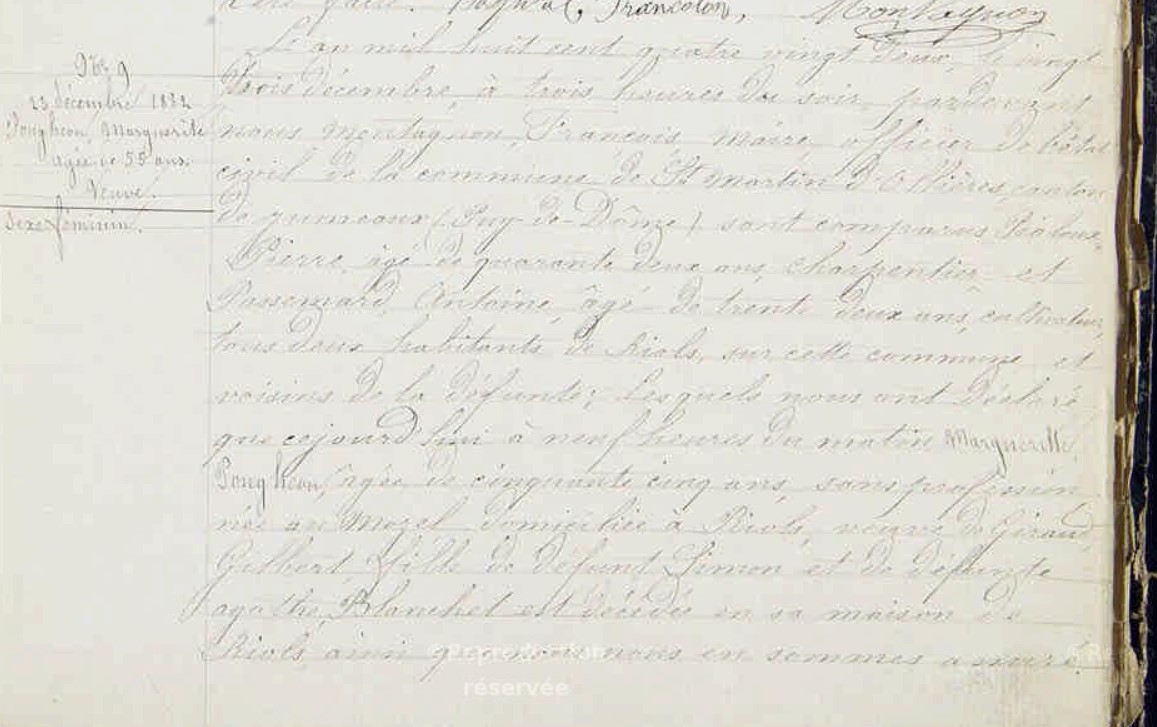 Francolon, Montagnon
L'an mil huit cent quatre vingt deux, le vingt
trois décembre, à trois heures du soir, pardevant
nous Montagnon, François, maire officier de l'état
civil de la commune de St Martin d'Ollières, canton
de jumeaux (Puy-de-Dôme) sont comparus
Pierre, âgé de quarante deux ans, charpentier et
Passemard, Antoine âgé de trente deux ans, cultivateur,
tous deux habitants de Riols, sur cette commune et
voisins de la défunte; lesquels nous ont déclaré
que cejourd'hui à neuf heures du matin Marguerite
Pougheon, âgée de cinquante cinq ans, sans profession
née au Mazel domiciliée à Riols, veuve de Giraud,
Gilbert, fille de défunt Simon et de défunte
agathe Blanchet est décédée en sa maison de
Riols, ainsi que nous nous en sommes assuré.
N° 9
23 décembre 1882
Pougheon, Marguerite
agée de 55 ans.
Veuve.
Sexe féminin.
© Reproduction
réservée